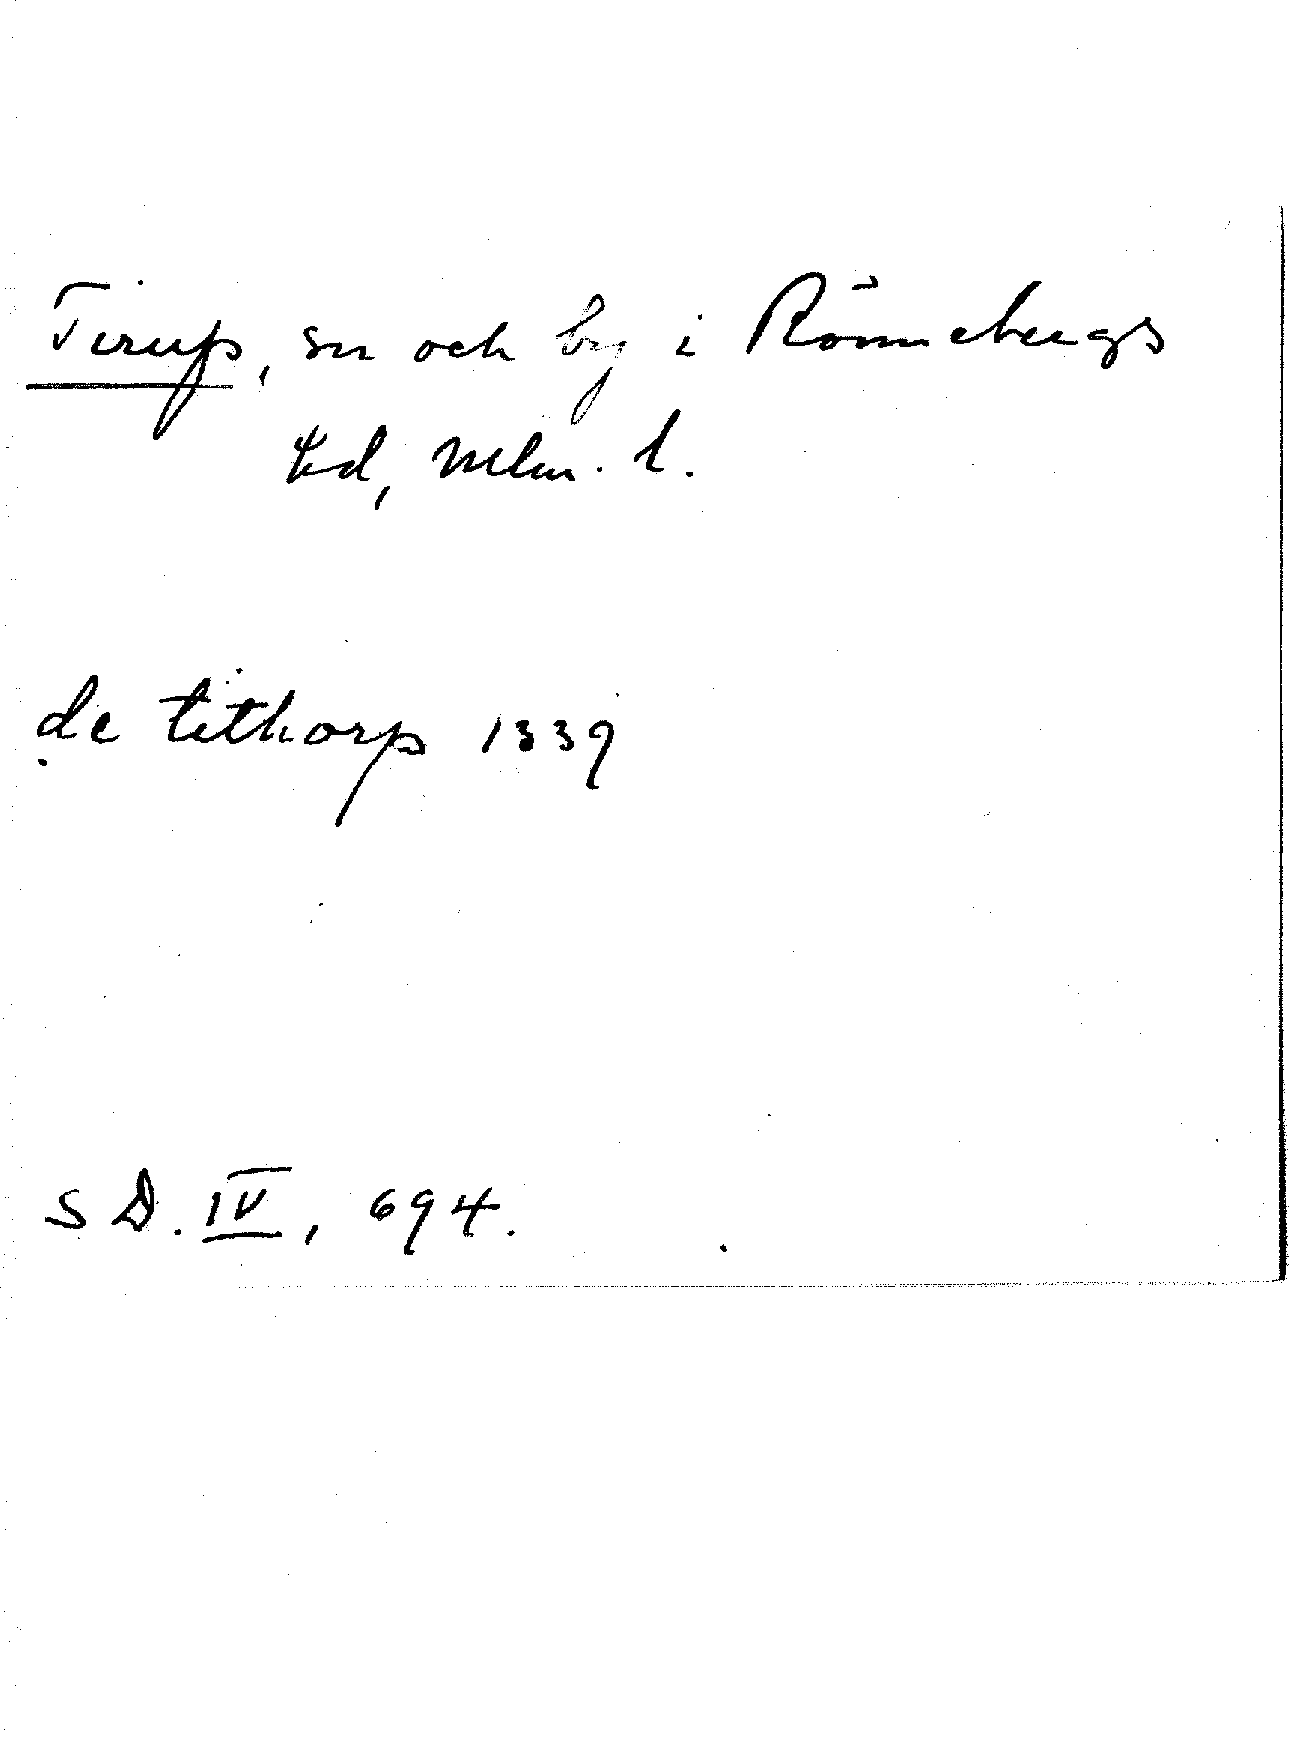 Tirup, sn och by i Rönnebergs
hd, Mlm. l.
de tithorp 1339
SD. IV, 694.